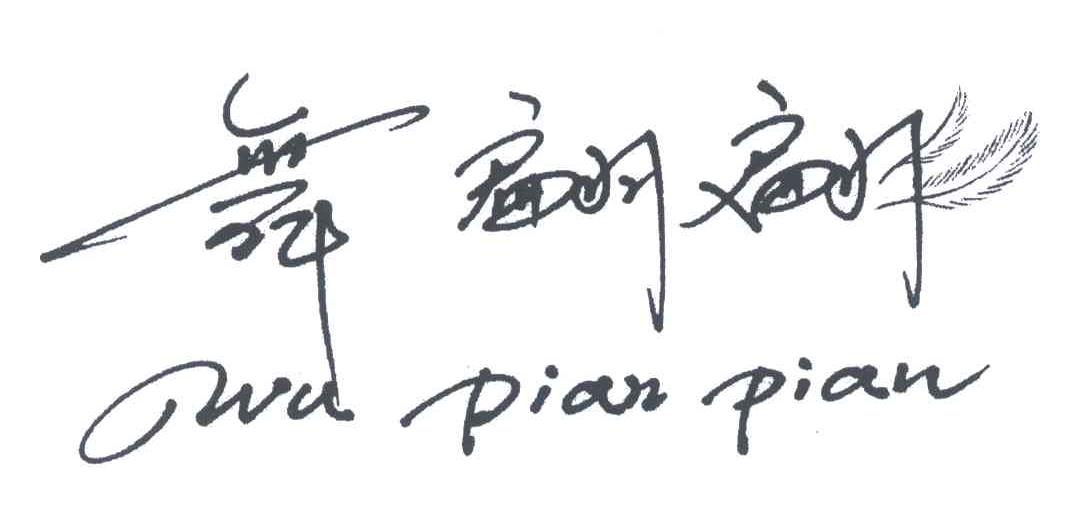 舞翩翩
wu pian pian